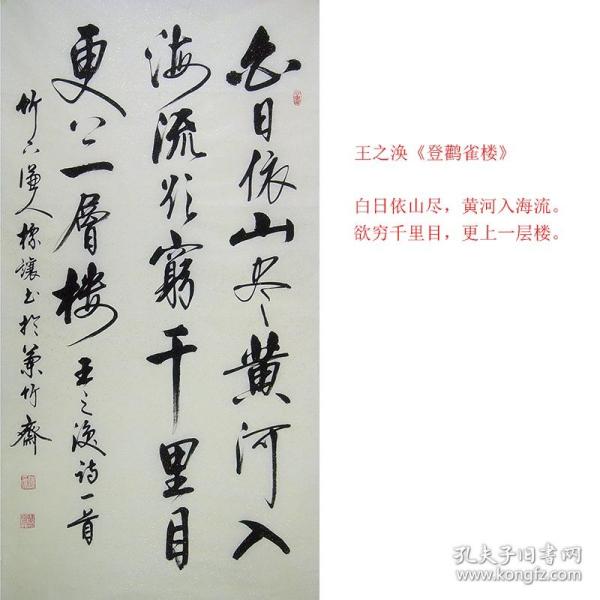 白日依山尽黄河入
海流欲窮千里目
更上一層楼
王之渙詩一首
竹下謙人標讓书於蘭竹齋
王之涣《登鹳雀楼》
白日依山尽，黄河入海流。
欲穷千里目，更上一层楼。
孔夫子旧书网
www.kongfz.com